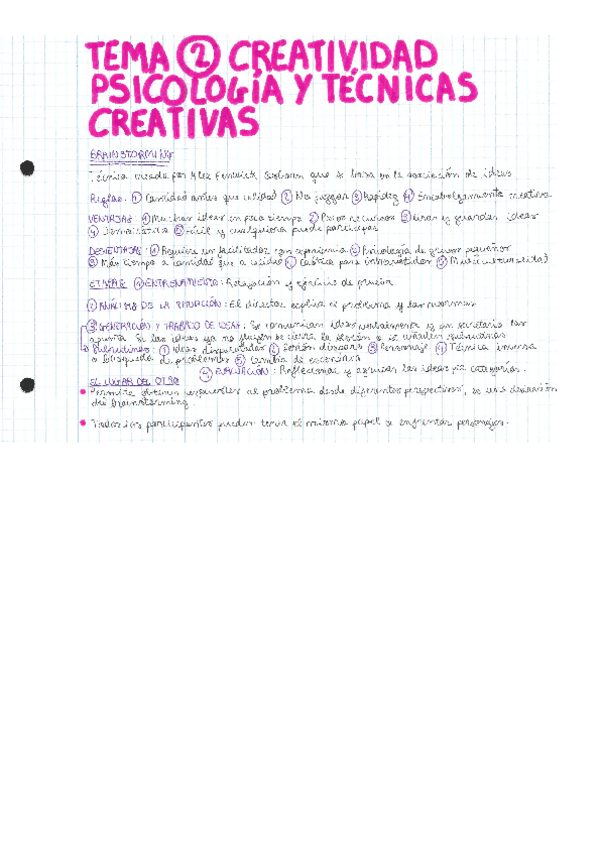 TEMA 2 CREATIVIDAD
PSICOLOGÍA Y TÉCNICAS
CREATIVAS
BRAINSTORMING
Técnica creada por Alex Osborn que se basa en la asociación de ideas
Reglas: ① Cantidad antes que calidad ② No juzgar ③ Rapidez ④ creativo
VENTAJAS: ① Muchas ideas en poco tiempo ② Pocos recursos ③ y grandes ideas
④ Democrática ⑤ Fácil y cualquiera puede participar
DESVENTAJAS: ① Requiere un facilitador con experiencia ② Psicología de grupos pequeños
③ Más tiempo a cantidad que a calidad ④ para introvertidos ⑤
ETAPAS ① ENTRENAMIENTO: Relajación y ejercicio de prueba
② ANÁLISIS DE LA SITUACIÓN: El director explica el problema y las normas
③ GENERACIÓN Y TRABAJO DE IDEAS: Se comunican ideas verbalmente y un secretario las
apunta. Si las ideas ya no fluyen se cierra la sesión o se añaden
① Ideas disparatadas ② ③ Personaje ④ Técnica inversa
o búsqueda de problemas ⑤ Cambio de escenario
④ EVALUACIÓN: Reflexionar y agrupar las ideas por categorías.
EL LUGAR DEL OTRO
• Permite obtener respuestas al problema desde diferentes perspectivas, es una
del brainstorming.
• Todos los participantes pueden tener el mismo papel o enfrentar personajes.